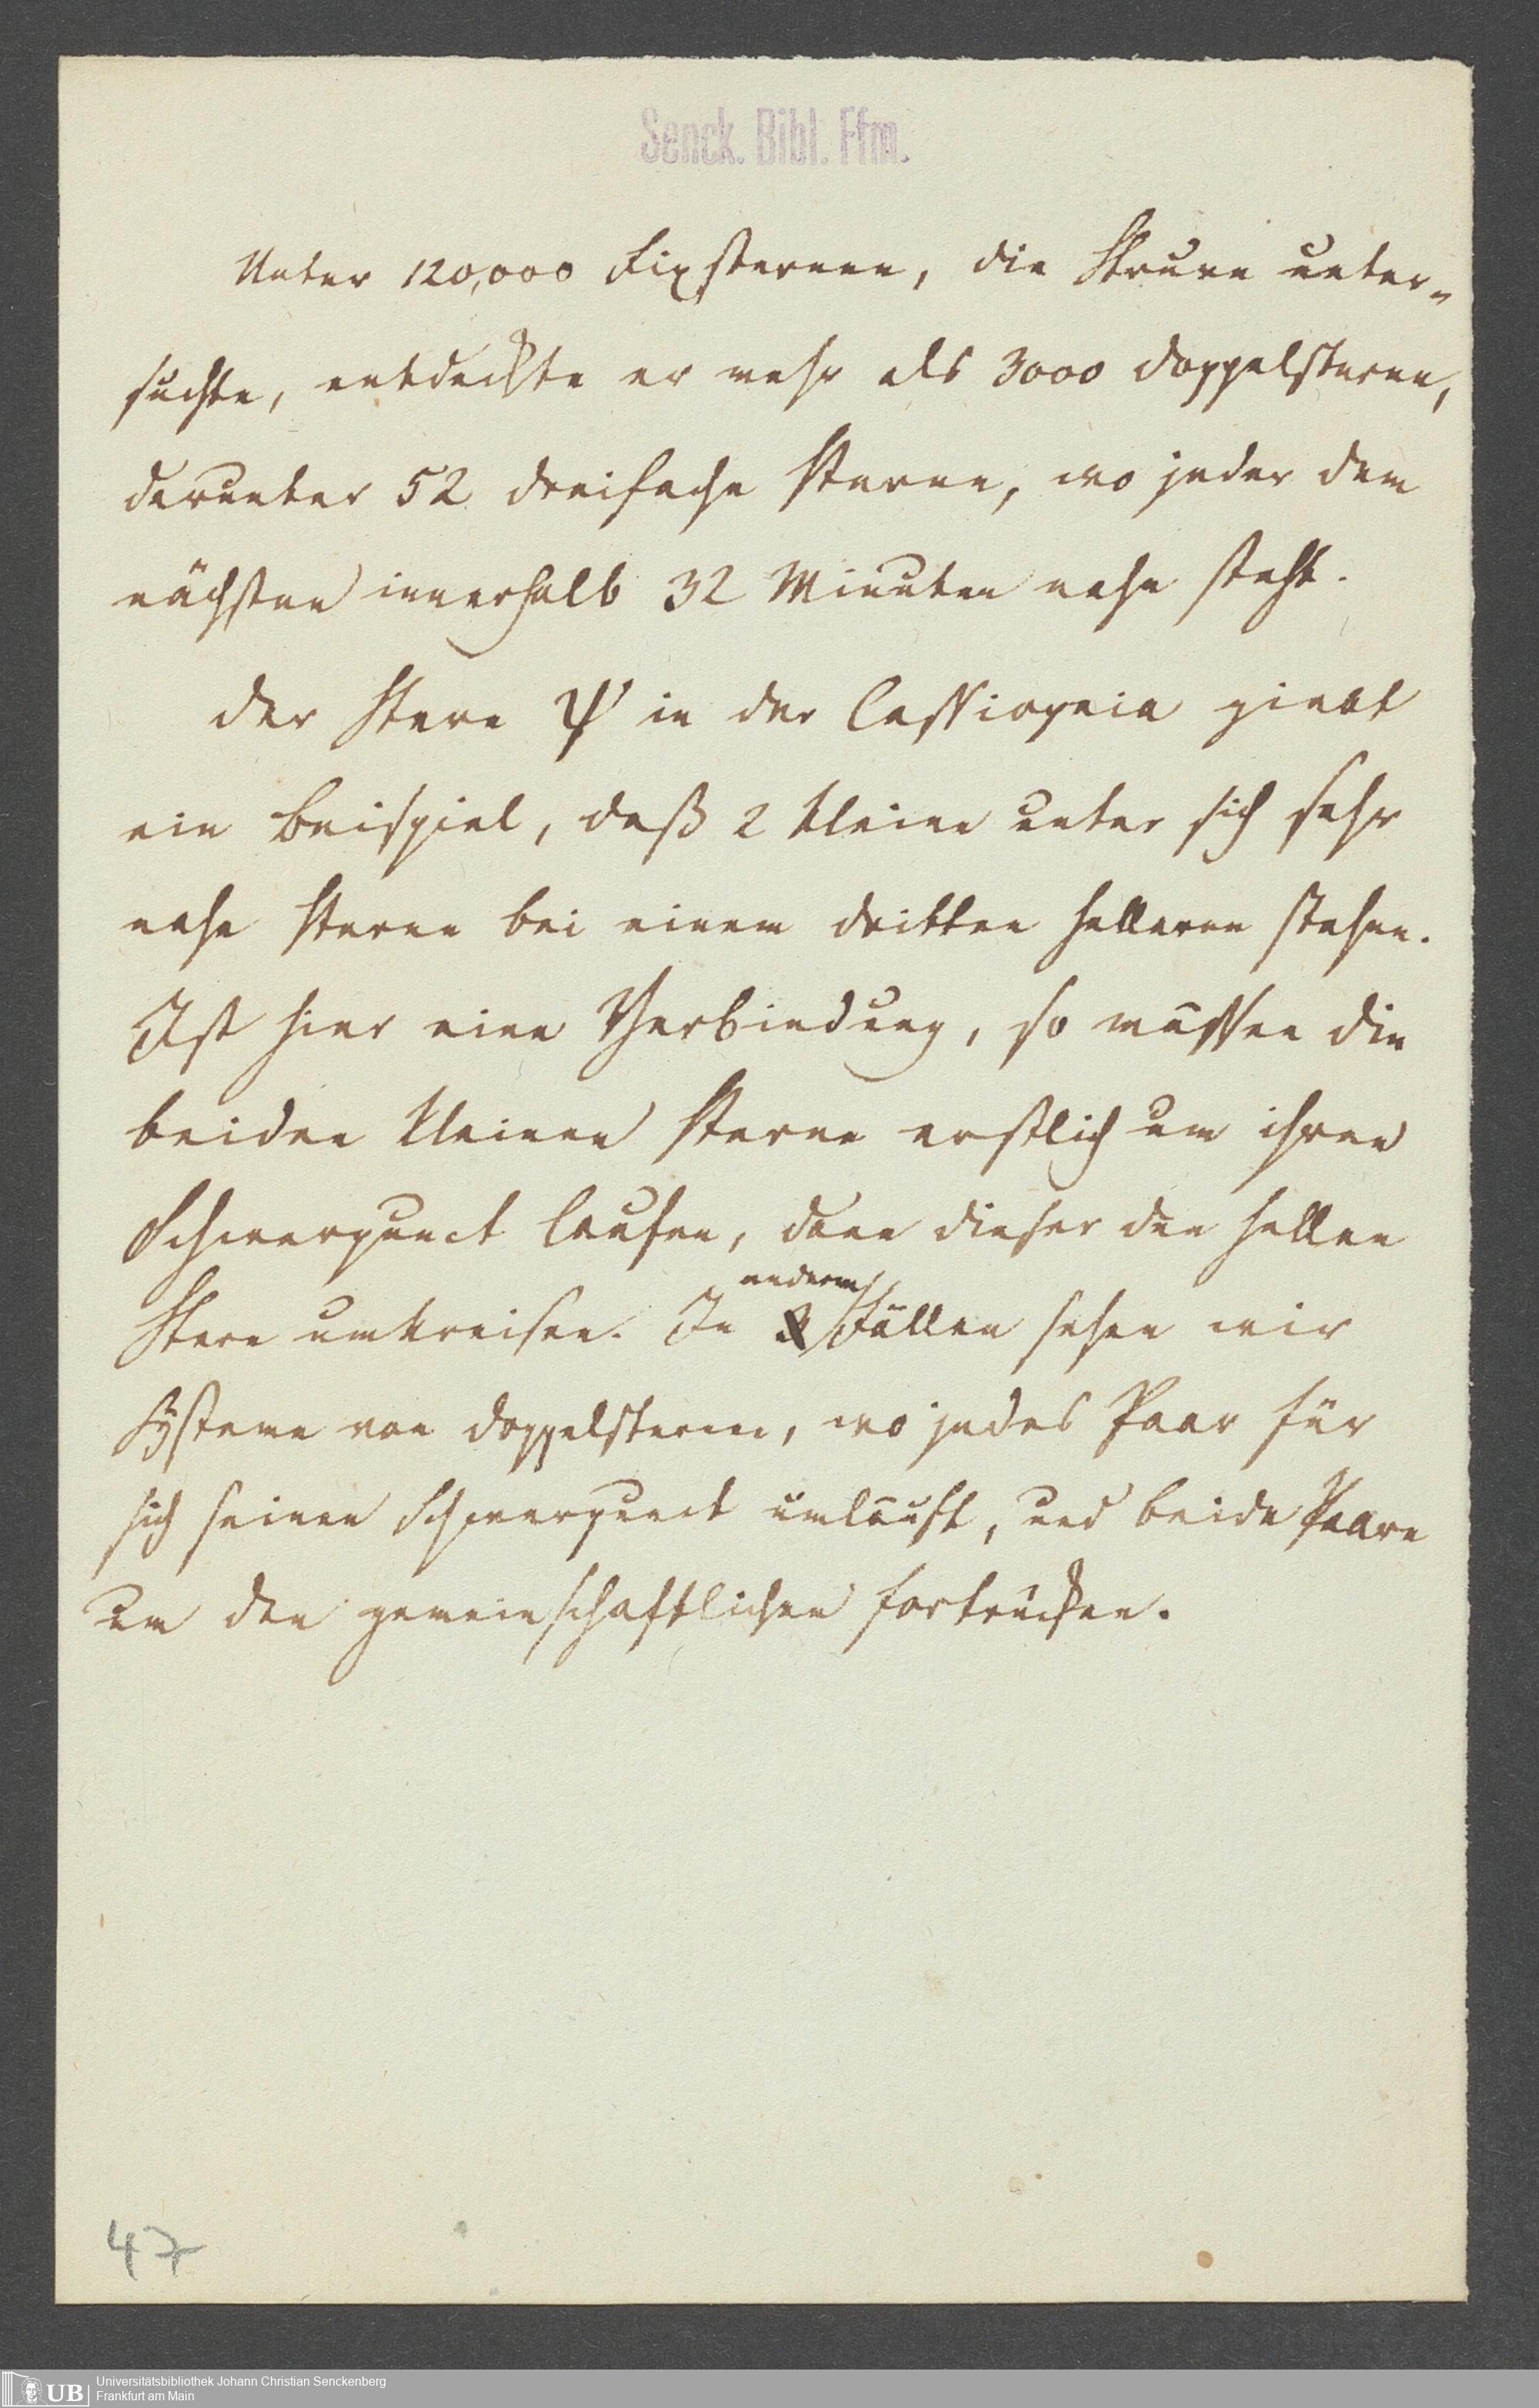 Senck. Bibl. Ffm.
Unter 120,000 Fixsternen, die Struve unter-
suchte, entdeckte er mehr als 3000 Doppelsterne,
darunter 52 dreifache Sterne, wo jeder dem
nächsten innerhalb 32 Minuten nahe steht.
Der Stern ψ in der Cassiopeia giebt
ein Beispiel, daß 2 kleine unter sich sehr
nahe Sterne bei einem dritten helleren stehen.
Ist hier eine Verbindung, so müssen die
beiden kleinen Sterne erstlich um ihren
Schwerpunct laufen, dann dieser den hellen
anderen
Stern umkreisen. In Fällen sehen wir
Systeme von Doppelsternen, wo jedes Paar für
sich seinen Schwerpunct umläuft, und beide Paare
um den gemeinschaftlichen fortrücken.
47
UB
Universitätsbibliothek Johann Christian Senckenberg
Frankfurt am Main